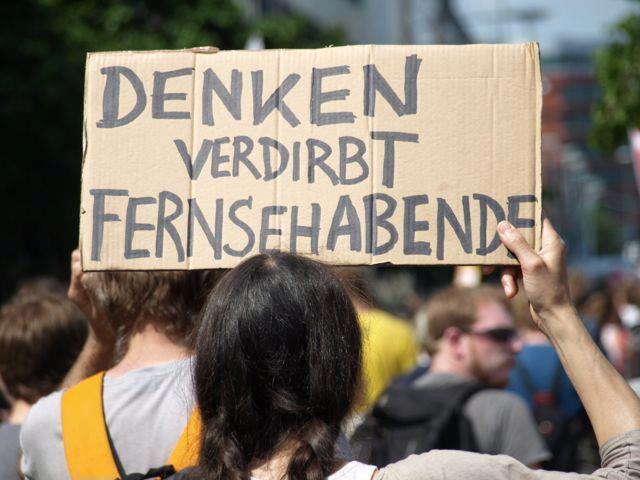 DENKEN
VERDIRBT
FERNSEHABENDE